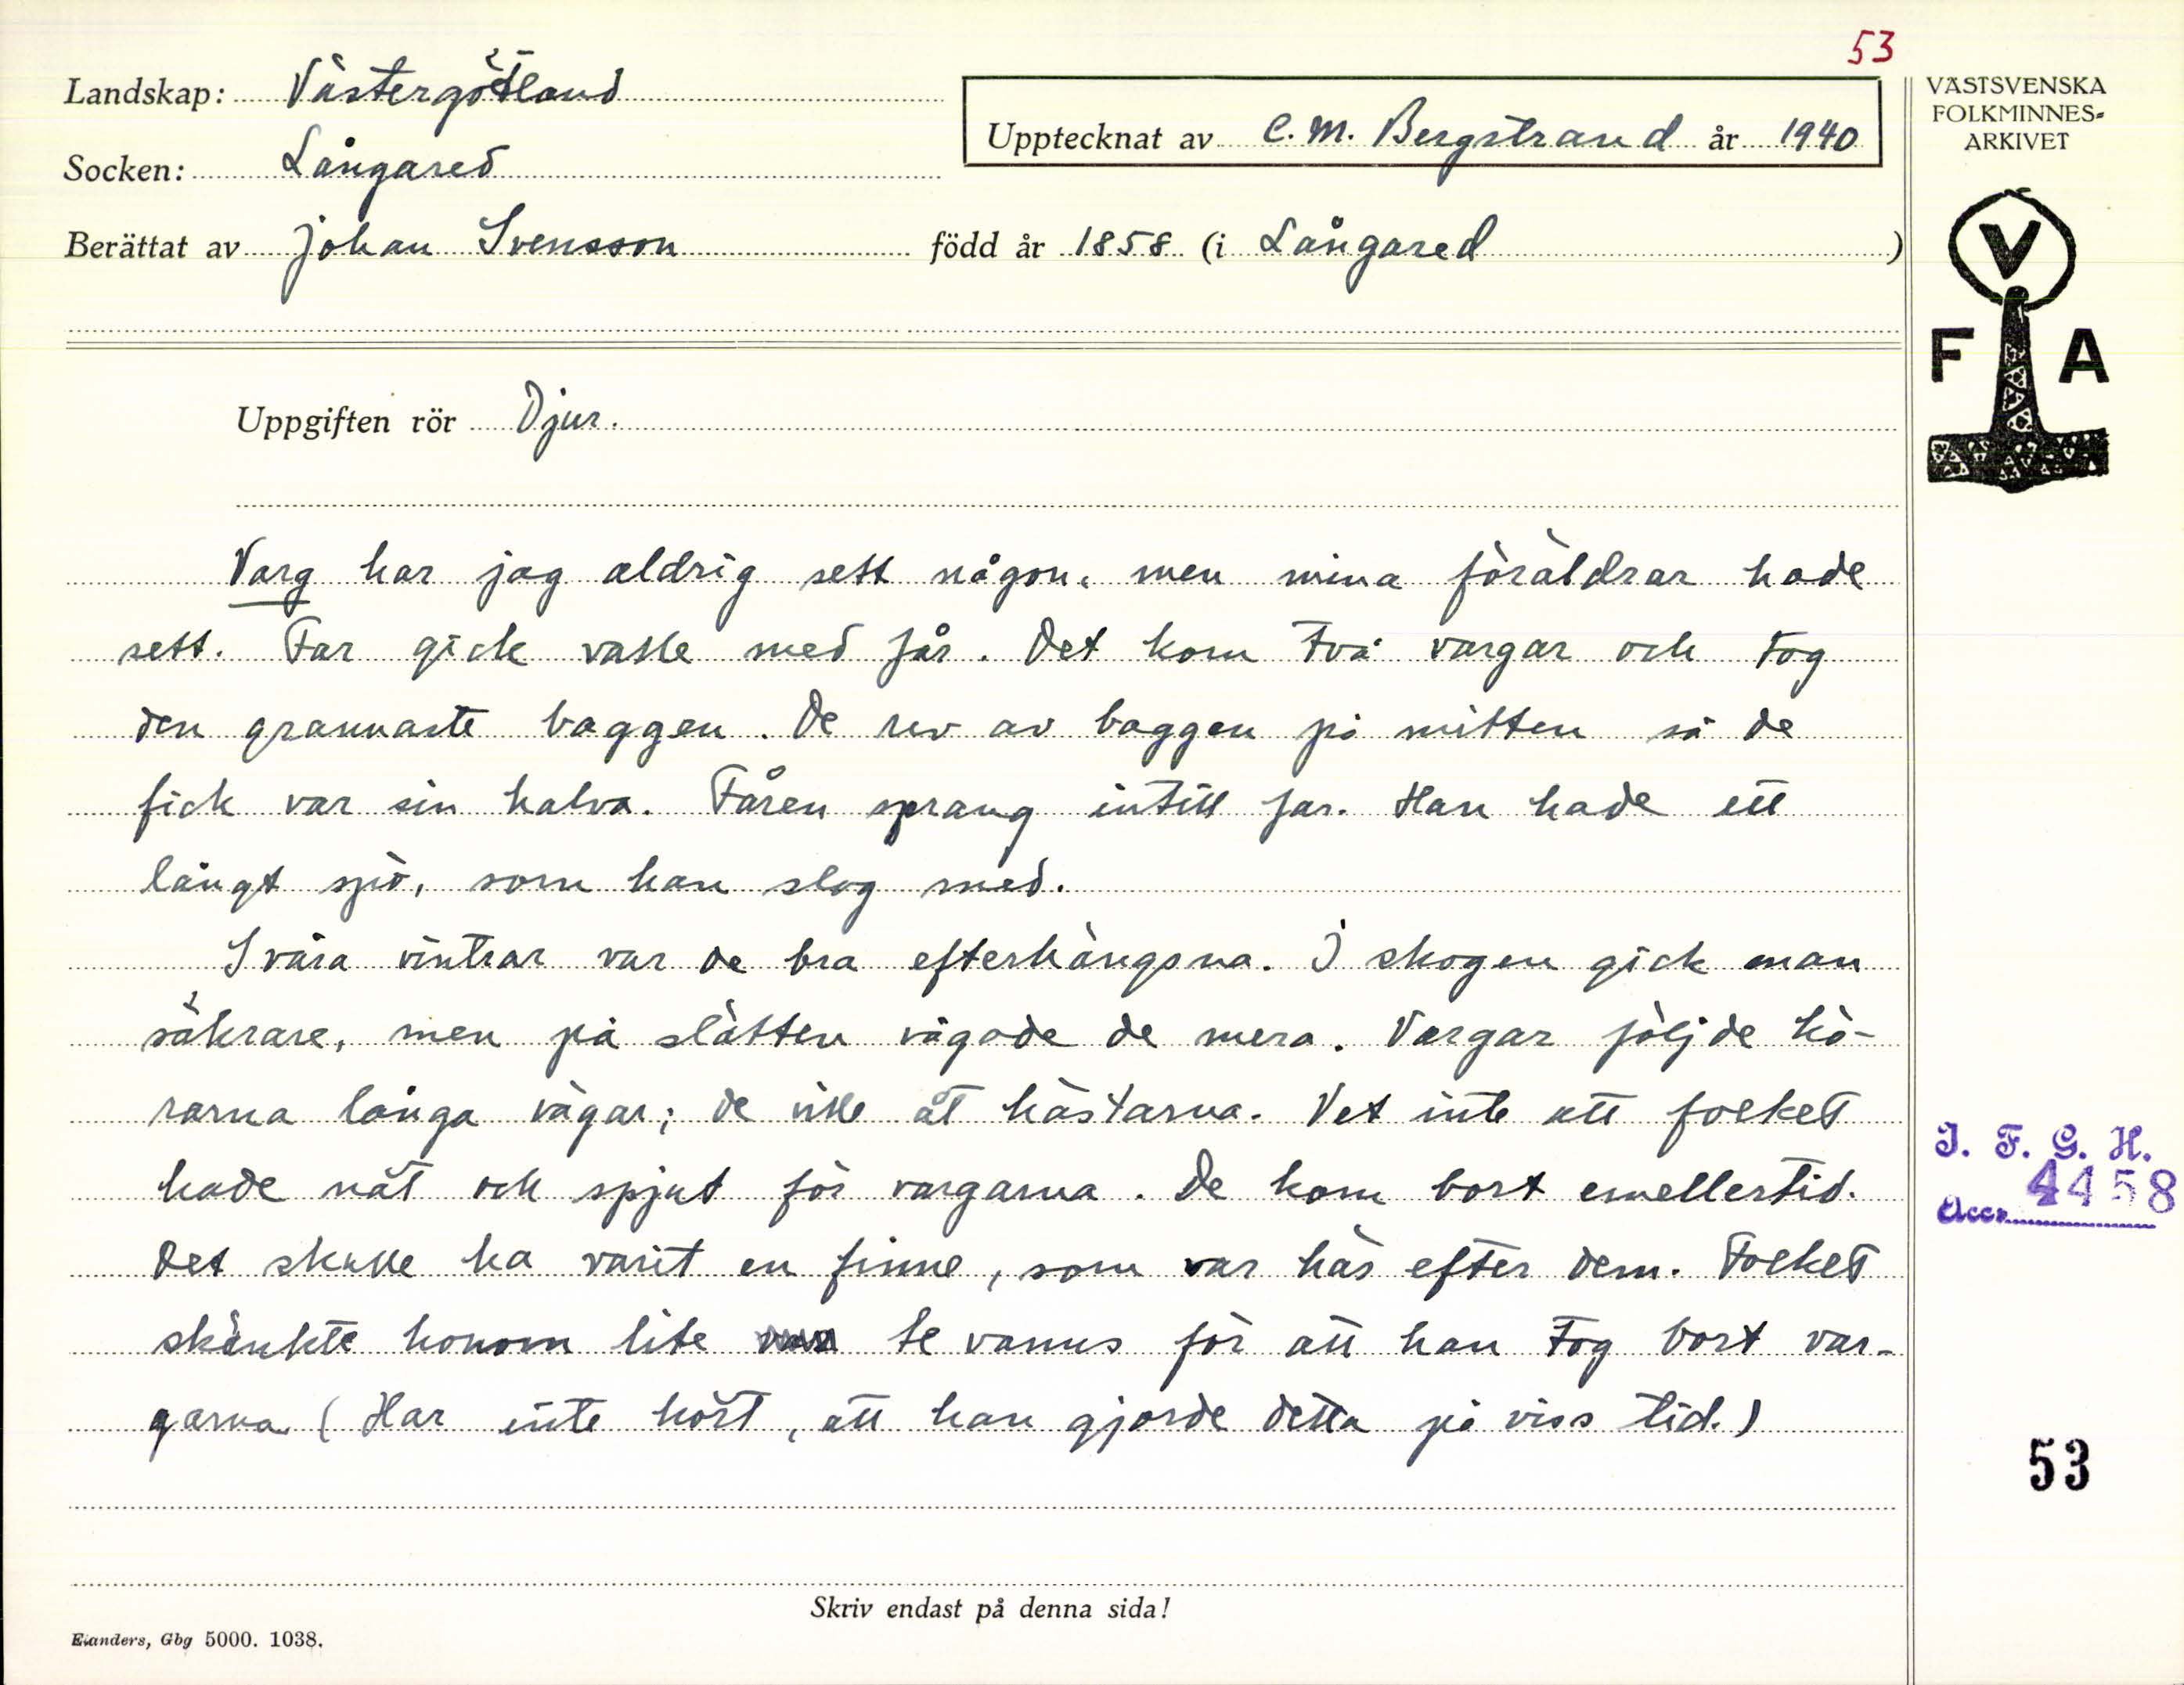 53
Landskap: Västergötland
Upptecknat av C. M. Bergstrand år 1940
Socken: Långared
Berättat av Johan Svensson född år 1858 (i Långared)
VÄSTSVENSKA
FOLKMINNES-
ARKIVET
V
F A
Uppgiften rör Djur.
Varg har jag aldrig sett någon, men mina föräldrar hade
sett. Far gick valle med får. Det kom två vargar och tog
den grannaste baggen. De rev av baggen på mitten så de
fick var sin halva. Fåren sprang intill far. Han hade ett
långt spö, som han slog med.
Svåra vintrar var de bra efterhängsna. I skogen gick man
säkrare, men på slätten vågade de mera. Vargar följde kö-
rarna långa vägar; de ville åt hästarna. Vet inte att folket
hade nät och spjut för vargarna. De kom bort emellertid.
Det skulle ha varit en finne, som var här efter dem. Folket
skänkte honom lite te vamus för att han tog bort var-
garna (Har inte hört, att han gjorde detta på viss tid.)
I. F. G. H.
Acc. 4458
53
Skriv endast på denna sida!
Elanders, Gbg 5000. 1038.